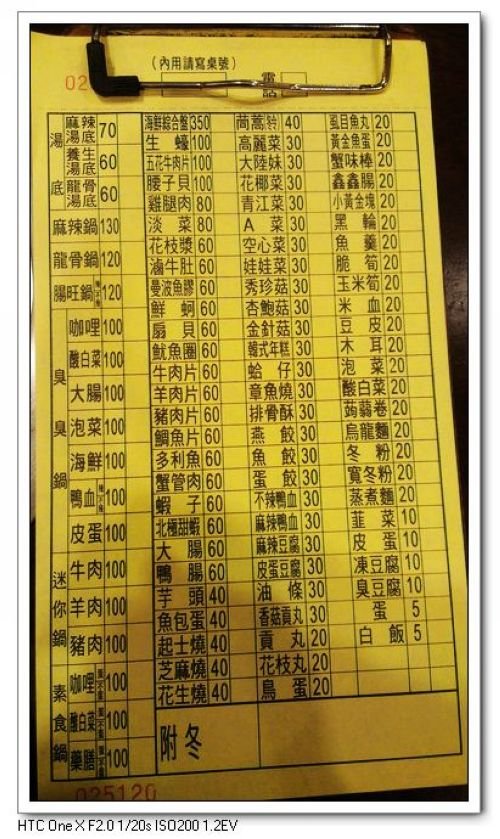 (內用請寫桌號)
02
電話
湯底
麻辣湯底 70
養生湯底 60
龍骨湯底 60
麻辣鍋 130
龍骨鍋 120
腸旺鍋 120
臭臭鍋
咖哩 100
酸白菜 100
大腸 100
泡菜 100
海鮮 100
鴨血 100
皮蛋 100
迷你鍋
牛肉 100
羊肉 100
豬肉 100
素食鍋
咖哩 100
酸白菜 100
藥膳 100
海鮮綜合盤 350
生蠔 100
五花牛肉片 100
腰子貝 100
雞腿肉 80
淡菜 80
花枝漿 60
滷牛肚 60
曼波魚膠 60
鮮蚵 60
扇貝 60
魷魚圈 60
牛肉片 60
羊肉片 60
豬肉片 60
鯛魚片 60
多利魚 60
蟹管肉 60
蝦子 60
北極甜蝦 60
大腸 60
鴨腸 60
芋頭 40
魚包蛋 40
起士燒 40
芝麻燒 40
花生燒 40
茼蒿 40
高麗菜 30
大陸妹 30
花椰菜 30
青江菜 30
A菜 30
空心菜 30
娃娃菜 30
秀珍菇 30
杏鮑菇 30
金針菇 30
韓式年糕 30
蛤仔 30
章魚燒 30
排骨酥 30
燕餃 30
魚餃 30
蛋餃 30
不辣鴨血 30
麻辣鴨血 30
麻辣豆腐 30
皮蛋豆腐 30
油條 30
香菇貢丸 30
貢丸 20
花枝丸 20
鳥蛋 20
虱目魚丸 20
黃金魚蛋 20
蟹味棒 20
鑫鑫腸 20
小黃金塊 20
黑輪 20
魚羹 20
脆筍 20
玉米筍 20
米血 20
豆皮 20
木耳 20
泡菜 20
酸白菜 20
蒟蒻卷 20
烏龍麵 20
冬粉 20
寬冬粉 20
蒸煮麵 20
韮菜 10
皮蛋 10
凍豆腐 10
臭豆腐 10
蛋 5
白飯 5
附冬
025120
HTC One X F2.0 1/20s ISO200 1.2EV